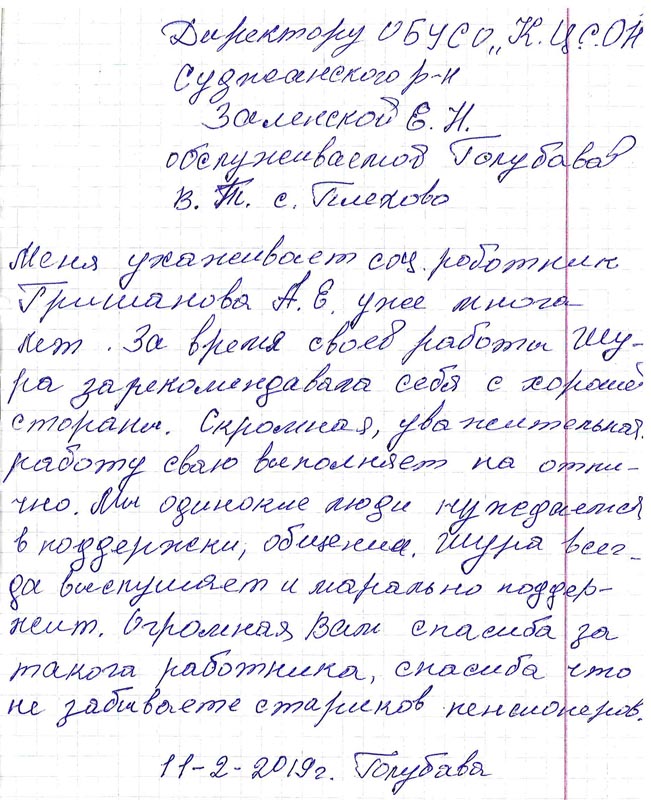 Директору ОБУСО „К.Ц.С.ОН
Суджанского р-н
Заленской Е.Н.
обслуживаемой Голубавой
В.Т. с. Плехово
Меня ухаживает соц. роботник
Гришанова А.Е. уже многа
лет. За время своей работы Шу-
ра зарекомендавала себя с хорошей
стораны. Скромная, уважительная.
работу сваю выполняет на отли-
чно. Мы одинокие люди нуждаемся
в поддержки, общении. Шура всег-
да выслушает и марально поддер-
жит. Огромная Вам спасиба за
такога работника, спасиба что
не забываете стариков пенсионеров.
11-2-2019г. Голубава